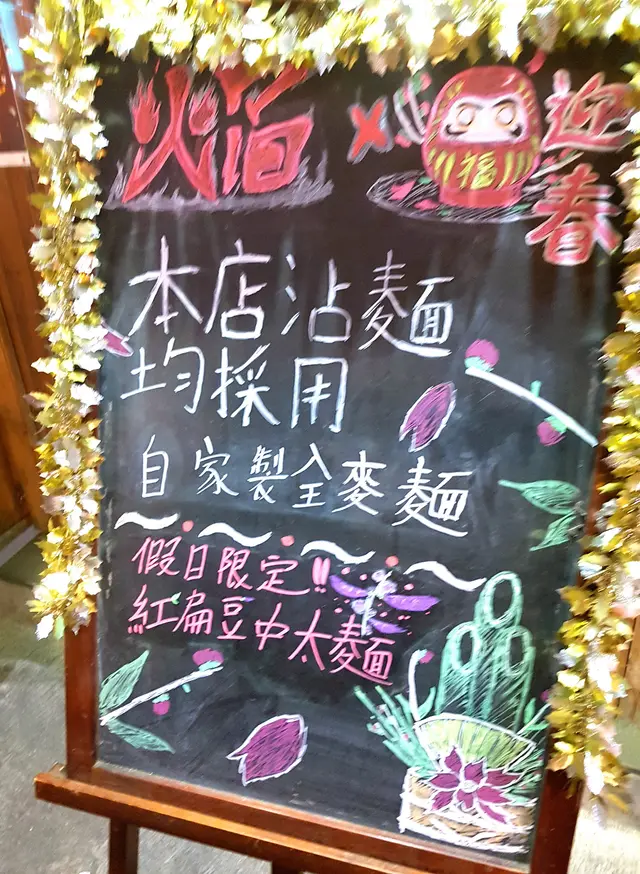 焰 x 迎春
福
本店沾麵
均採用
自家製全麥麵
假日限定!!
紅扁豆中太麵